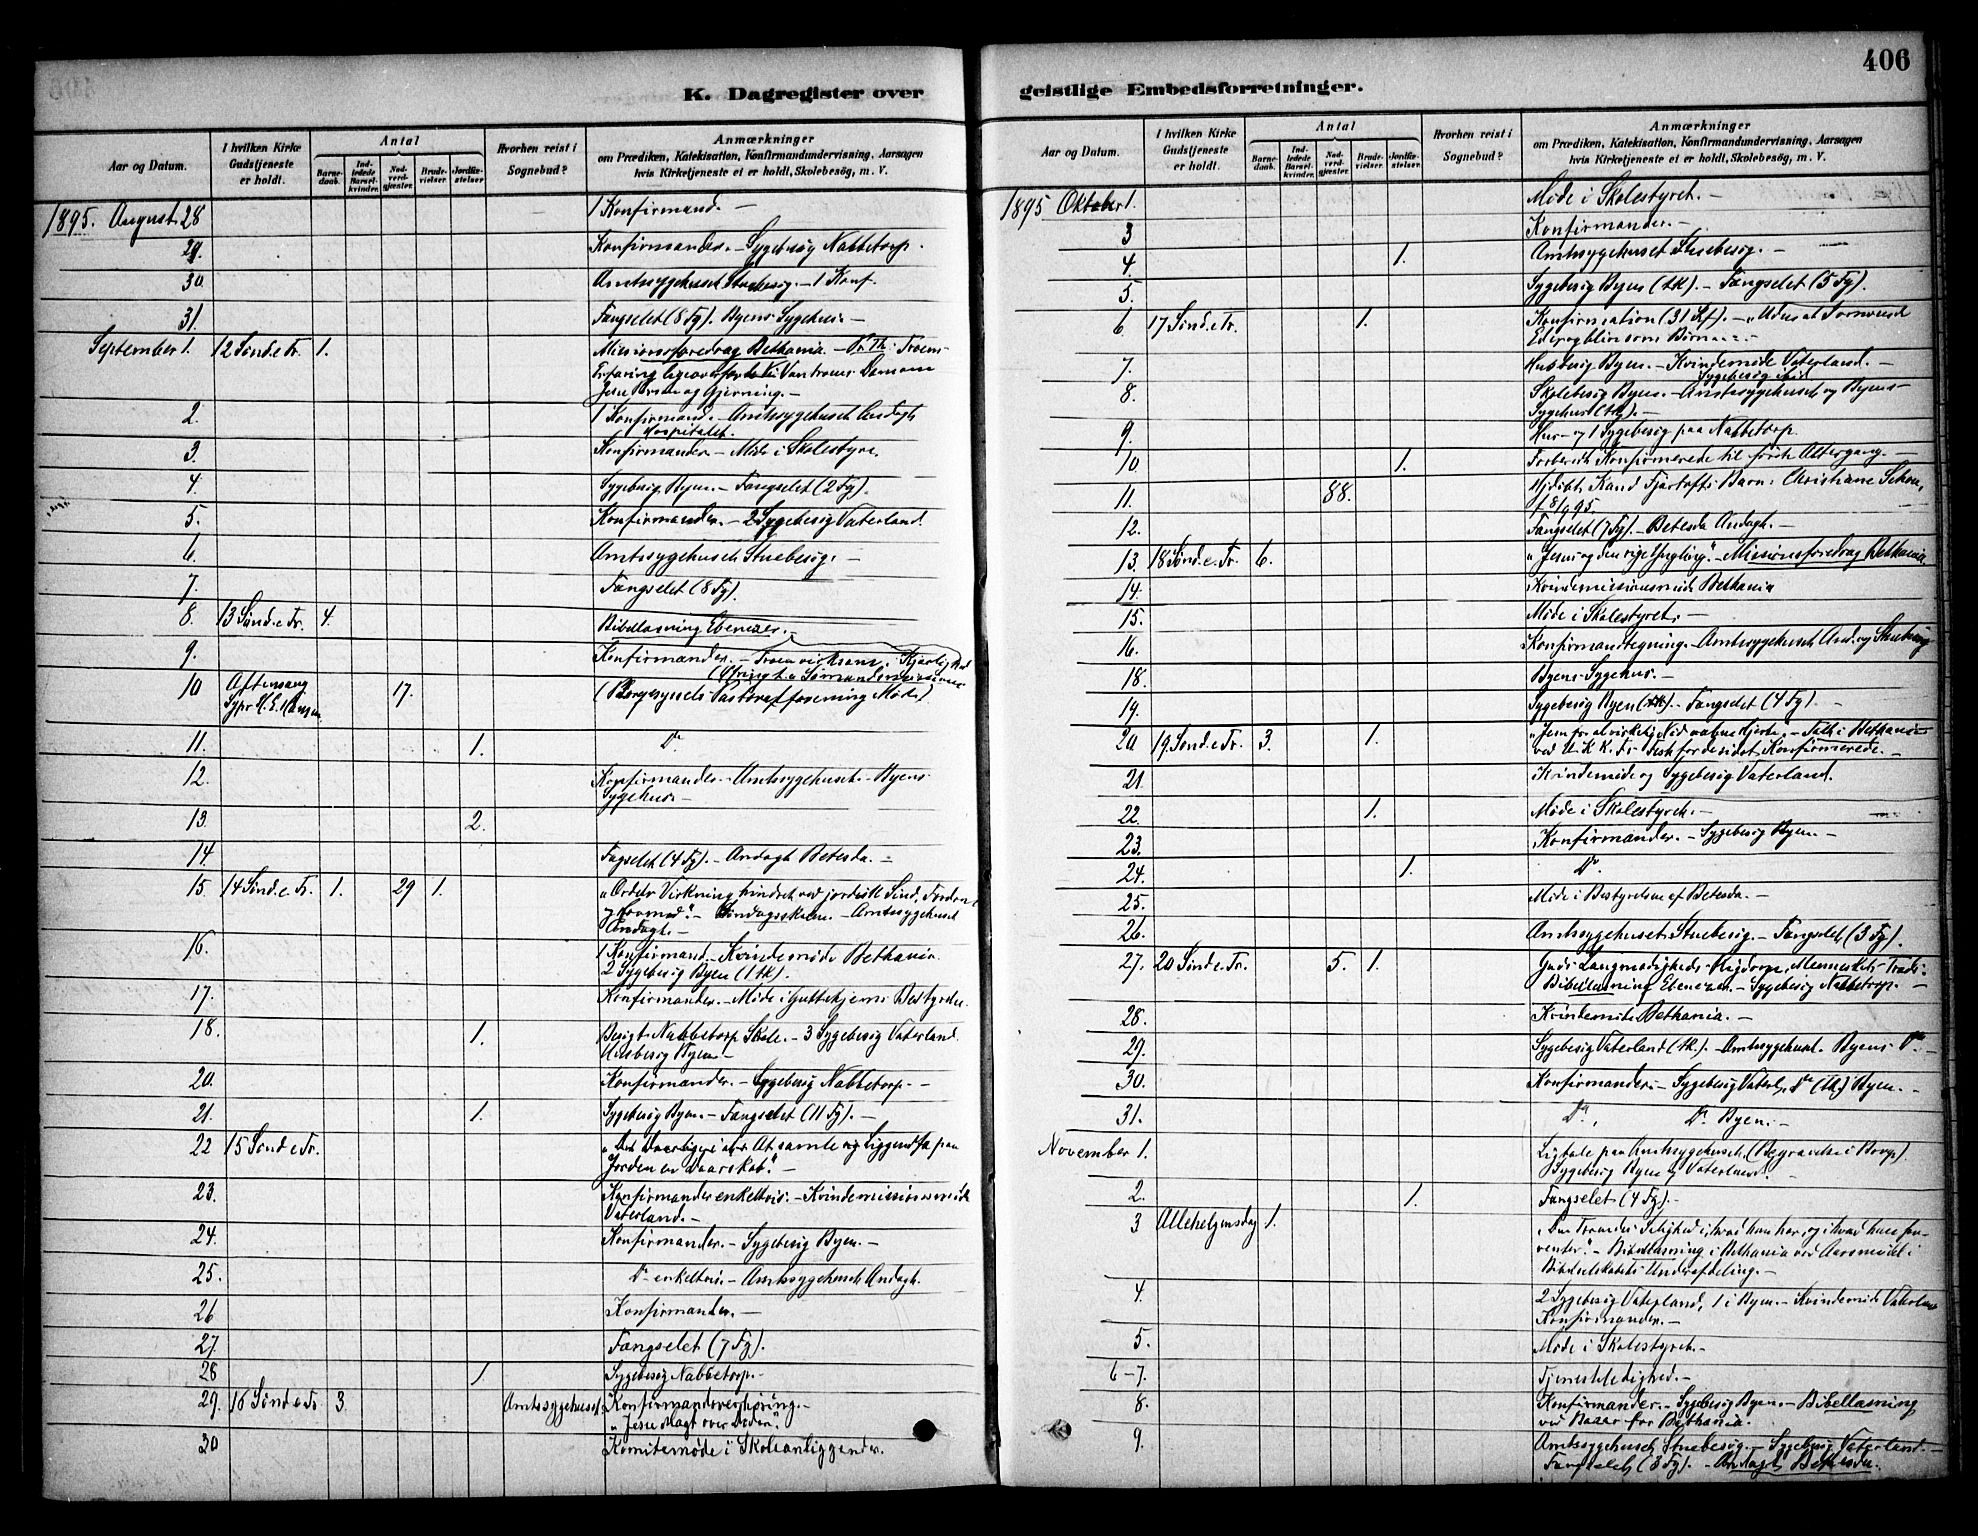 406
K. Dagregister over geistlige Embedsforretninger.
Aar og Datum.
I hvilken Kirke Gudstjeneste er holdt.
Antal
Barnedaab.
Indledede Barselkvinder.
Nadverdgjæster.
Brudevielser.
Jordfæstelser.
Hvorhen reist i Sognebud?
Anmærkninger
om Prædiken, Katekisation, Konfirmandundervisning, Aarsagen
hvis Kirketjeneste ei er holdt, Skolebesög, m. V.
1895. August 28 1 Konfirmand. —
29. Konfirmander. — Sygebesøg Nabbetorp.
30 Amtssygehuset Stuebesøg. — 1 Konf.
31. Fængselet (8 Fg). Byens Sygehus —
September 1. 12 Sønd. e Tr. 1. Missionsforedrag Bethania.
Jesu Person og Gjerning. —
2. 1 Konfirmand. — Amtssygehuset Andagt,
Hospitalet.
3. Konfirmander — Møde i Skolestyre.
4. Sygebesøg Byen. — Fængselet (2 Fg).
5. Konfirmander. — 2 Sygebesøg Vaterland.
6. Amtssygehuset Stuebesøg. —
7. Fængselet (8 Fg).
8. 13 Sønd. e Tr. 4. Bibellæsning Ebenezer. —
9. Konfirmander. —
10 Aftensang 17. (Borgesyssels Pastoralforening Møde)
11. 1. Do
12. Konfirmander — Amtssygehuset — Byens
Sygehus —
13. 2.
14. Fægselet (4 Fg). — Andagt Betesda. —
15. 14 Sønd. e Tr. 1. 29 1. "Ordets Virkning hindret ved jordisk Sind,
Søndagsskolen — Amtssygehuset
Andagt. —
16. 1 Konfirmand — Kvindemøde Bethania.
2 Sygebesøg Byen (1 tk).
17. Konfirmander. — Møde i Guttehjems Bestyrelse.
18. 1. Besøgt Nabbetorp Skole. — 3 Sygebesøg Vaterland.
Husbesøg Byen —
20. Konfirmander. — Sygebesøg Nabbetorp. —
21. 1. Sygebesøg Byen. — Fængselet (11 Fg). —
22 15 Sønd e Tr.
Jorden er Daarskab". —
23. Konfirmander enkeltvis. — Kvindemissionsmøde
Vaterland. —
24. Konfirmander. — Sygebesøg Byen. —
25. Do enkeltvis. — Amtssygehuset Andagt.
26 Konfirmander. —
27. Fængselet (7 Fg).
28 1 Sygebesøg Nabbetorp. —
29. 16 Sønd e Tr 3. Amtssygehuset. Konfirmandoverhøring. —
"Jesu Magt over Døden".
30 Komitemøde i Skoleanliggender.
Aar og Datum.
I hvilken Kirke Gudstjeneste er holdt.
Antal
Barnedaab.
Indledede Barselkvinder.
Nadverdgjæster.
Brudevielser.
Jordfæstelser.
Hvorhen reist i Sognebud?
Anmærkninger
om Prædiken, Katekisation, Konfirmandundervisning, Aarsagen
hvis Kirketjeneste ei er holdt, Skolebesög, m. V.
1895 Oktober 1. Møde i Skolestyret. —
3 Konfirmander. —
4. 1. Amtssygehuset Stuebesøg. —
5. Sygebesøg Byen (tk). — Fængselet (5 Fg).
6 17 Sønd. e Tr. 1. Konfirmation
7. Husbesøg Byen. — Kvindemøde Vaterland. —
8. Skolebesøg Byen. — Amtssygehuset og Byens
Sygehus (tk). —
9. Hus- og 1 Sygebesøg paa Nabbetorp.
10 1. Konfirmerede til første Altergang. —
11. 88.
12. Fængselet (7 Fg). — Betesda Andagt. —
13. 18 Sønd. e. Tr. 6. "Jesus og den rige Yngling". — Missionsforedrag Bethania.
14. Kvindemissionsmøde Bethania
15. Møde i Skolestyret. —
16.
18. Byens Sygehus. —
19. Sygebesøg Byen (tk). — Fængselet (4 Fg). —
20 19 Sønd. e Tr. 3. 1. Tale i Bethania
ved U. K. K. F.s Fest for de sidst Konfirmerede. —
21. Kvindemøde og Sygebesøg Vaterland.
22. 1. Møde i Skolestyret. —
23. Konfirmander. — Sygebesøg Byen. —
24. 1. Do
25. Møde i Bestyrelsen af Betesda. —
26. Amtssygehuset Stuebesøg. — Fængselet (3 Fg).
27. 20 Sønd e Tr. 5. 1. Guds Langmodigheds
Bibellæsning Ebenezer. — Sygebesøg Nabbetorp. —
28. Kvindemøde Bethania. —
29. Sygebesøg Vaterland (tk). — Amtssygehuset. Byens Do —
30. Konfirmander. — Sygebesøg Vaterl, Do (tk) Byen. —
31. Do, Do Byen. —
November 1. Ligtale paa Amtssygehuset (Begravelse i Borge).
Sygebesøg Byen og Vaterland. —
2. 1. Fængselet (4 Fg). —
3 Allehelgensdag 1. Bibellæsning i Bethania ved Aarsmødet i
Bibelselskabets Underafdeling. —
4. 2 Sygebesøg Vaterland, 1 i Byen. — Kvindemøde Vaterland
Konfirmander. —
5. Møde i Skolestyret. —
6-7. Tjenestledighed. —
8. Konfirmander. — Sygebesøg Byen. — Bibellæsning
ved Basar for Bethania.
9. Amtssygehuset Stuebesøg. — Sygebesøg Vaterland. —
Fængselet (3 Fg). — Andagt Bethesda.